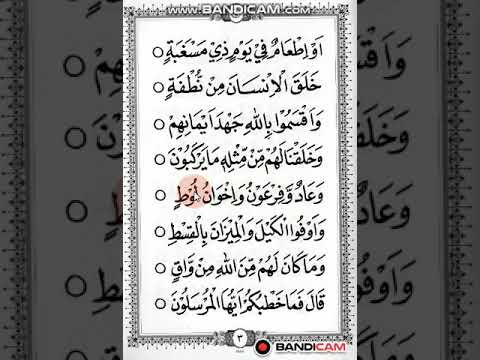 WWW.BANDICAM.COM
اَوْ اِطْعَامٌ فِيْ يَوْمٍ ذِيْ مَسْغَبَةٍ
خَلَقَ الْاِنْسَانَ مِنْ نُّطْفَةٍ
وَاَقْسَمُوْا بِاللهِ جَهْدَ اَيْمَانِهِمْ
وَخَلَقْنَا لَهُمْ مِّنْ مِّثْلِهٖ مَا يَرْكَبُوْنَ
وَعَادٌ وَّفِرْعَوْنُ وَاِخْوَانُ لُوْطٍ
وَاَوْفُوا الْكَيْلَ وَالْمِيْزَانَ بِالْقِسْطِ
وَمَا كَانَ لَهُمْ مِّنَ اللهِ مِنْ وَّاقٍ
قَالَ فَمَا خَطْبُكُمْ اَيُّهَا الْمُرْسَلُوْنَ
٣
BANDICAM